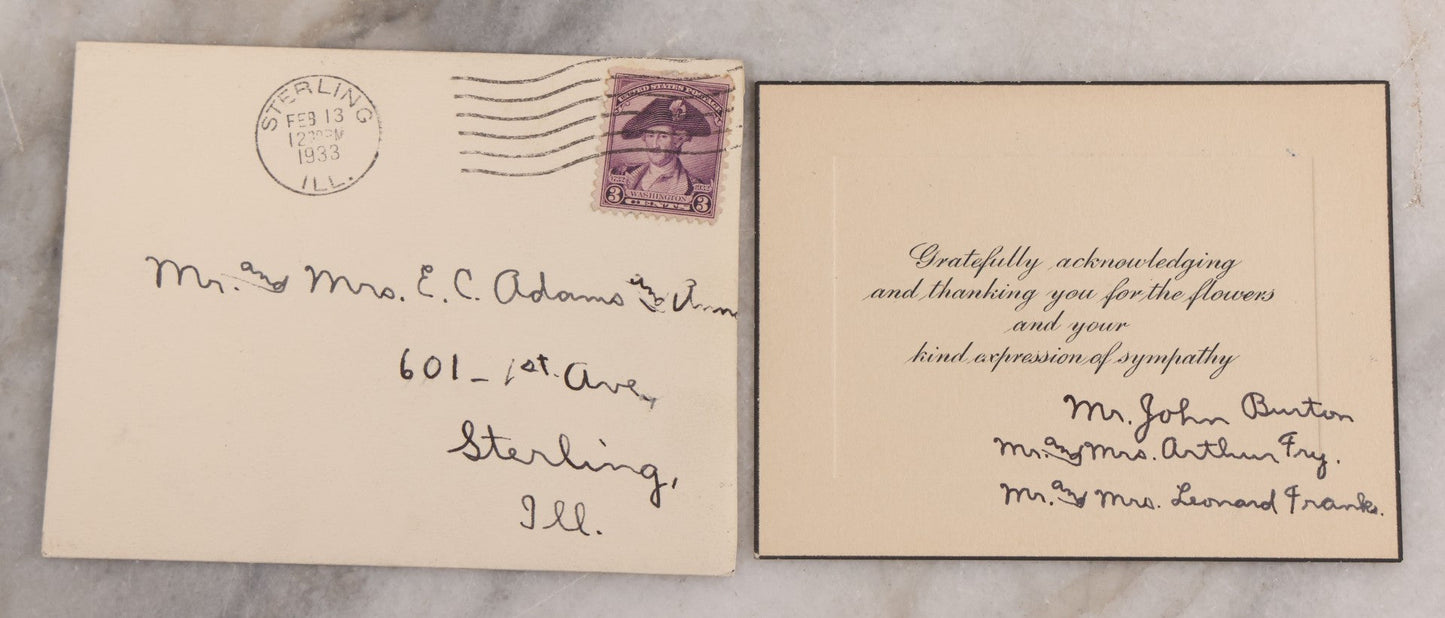 STERLING
FEB 13
12 30 PM
1933
ILL.
UNITED STATES POSTAGE
3 WASHINGTON 3
CENTS
Mr. and Mrs. E. C. Adams and
601 - 1st. Ave.,
Sterling,
Ill.
Gratefully acknowledging
and thanking you for the flowers
and your
kind expression of sympathy
Mr. John Burton
Mr. and Mrs. Arthur Fry.
Mr. and Mrs. Leonard Franks.